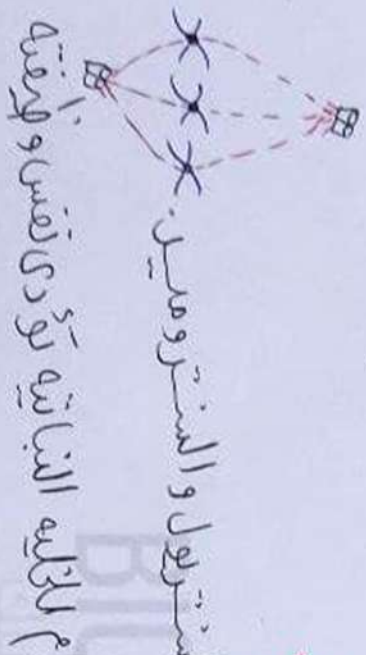 سنتريول والسنترومير.
م الخلية النباتية تؤدى نفس وظيفته
BIO